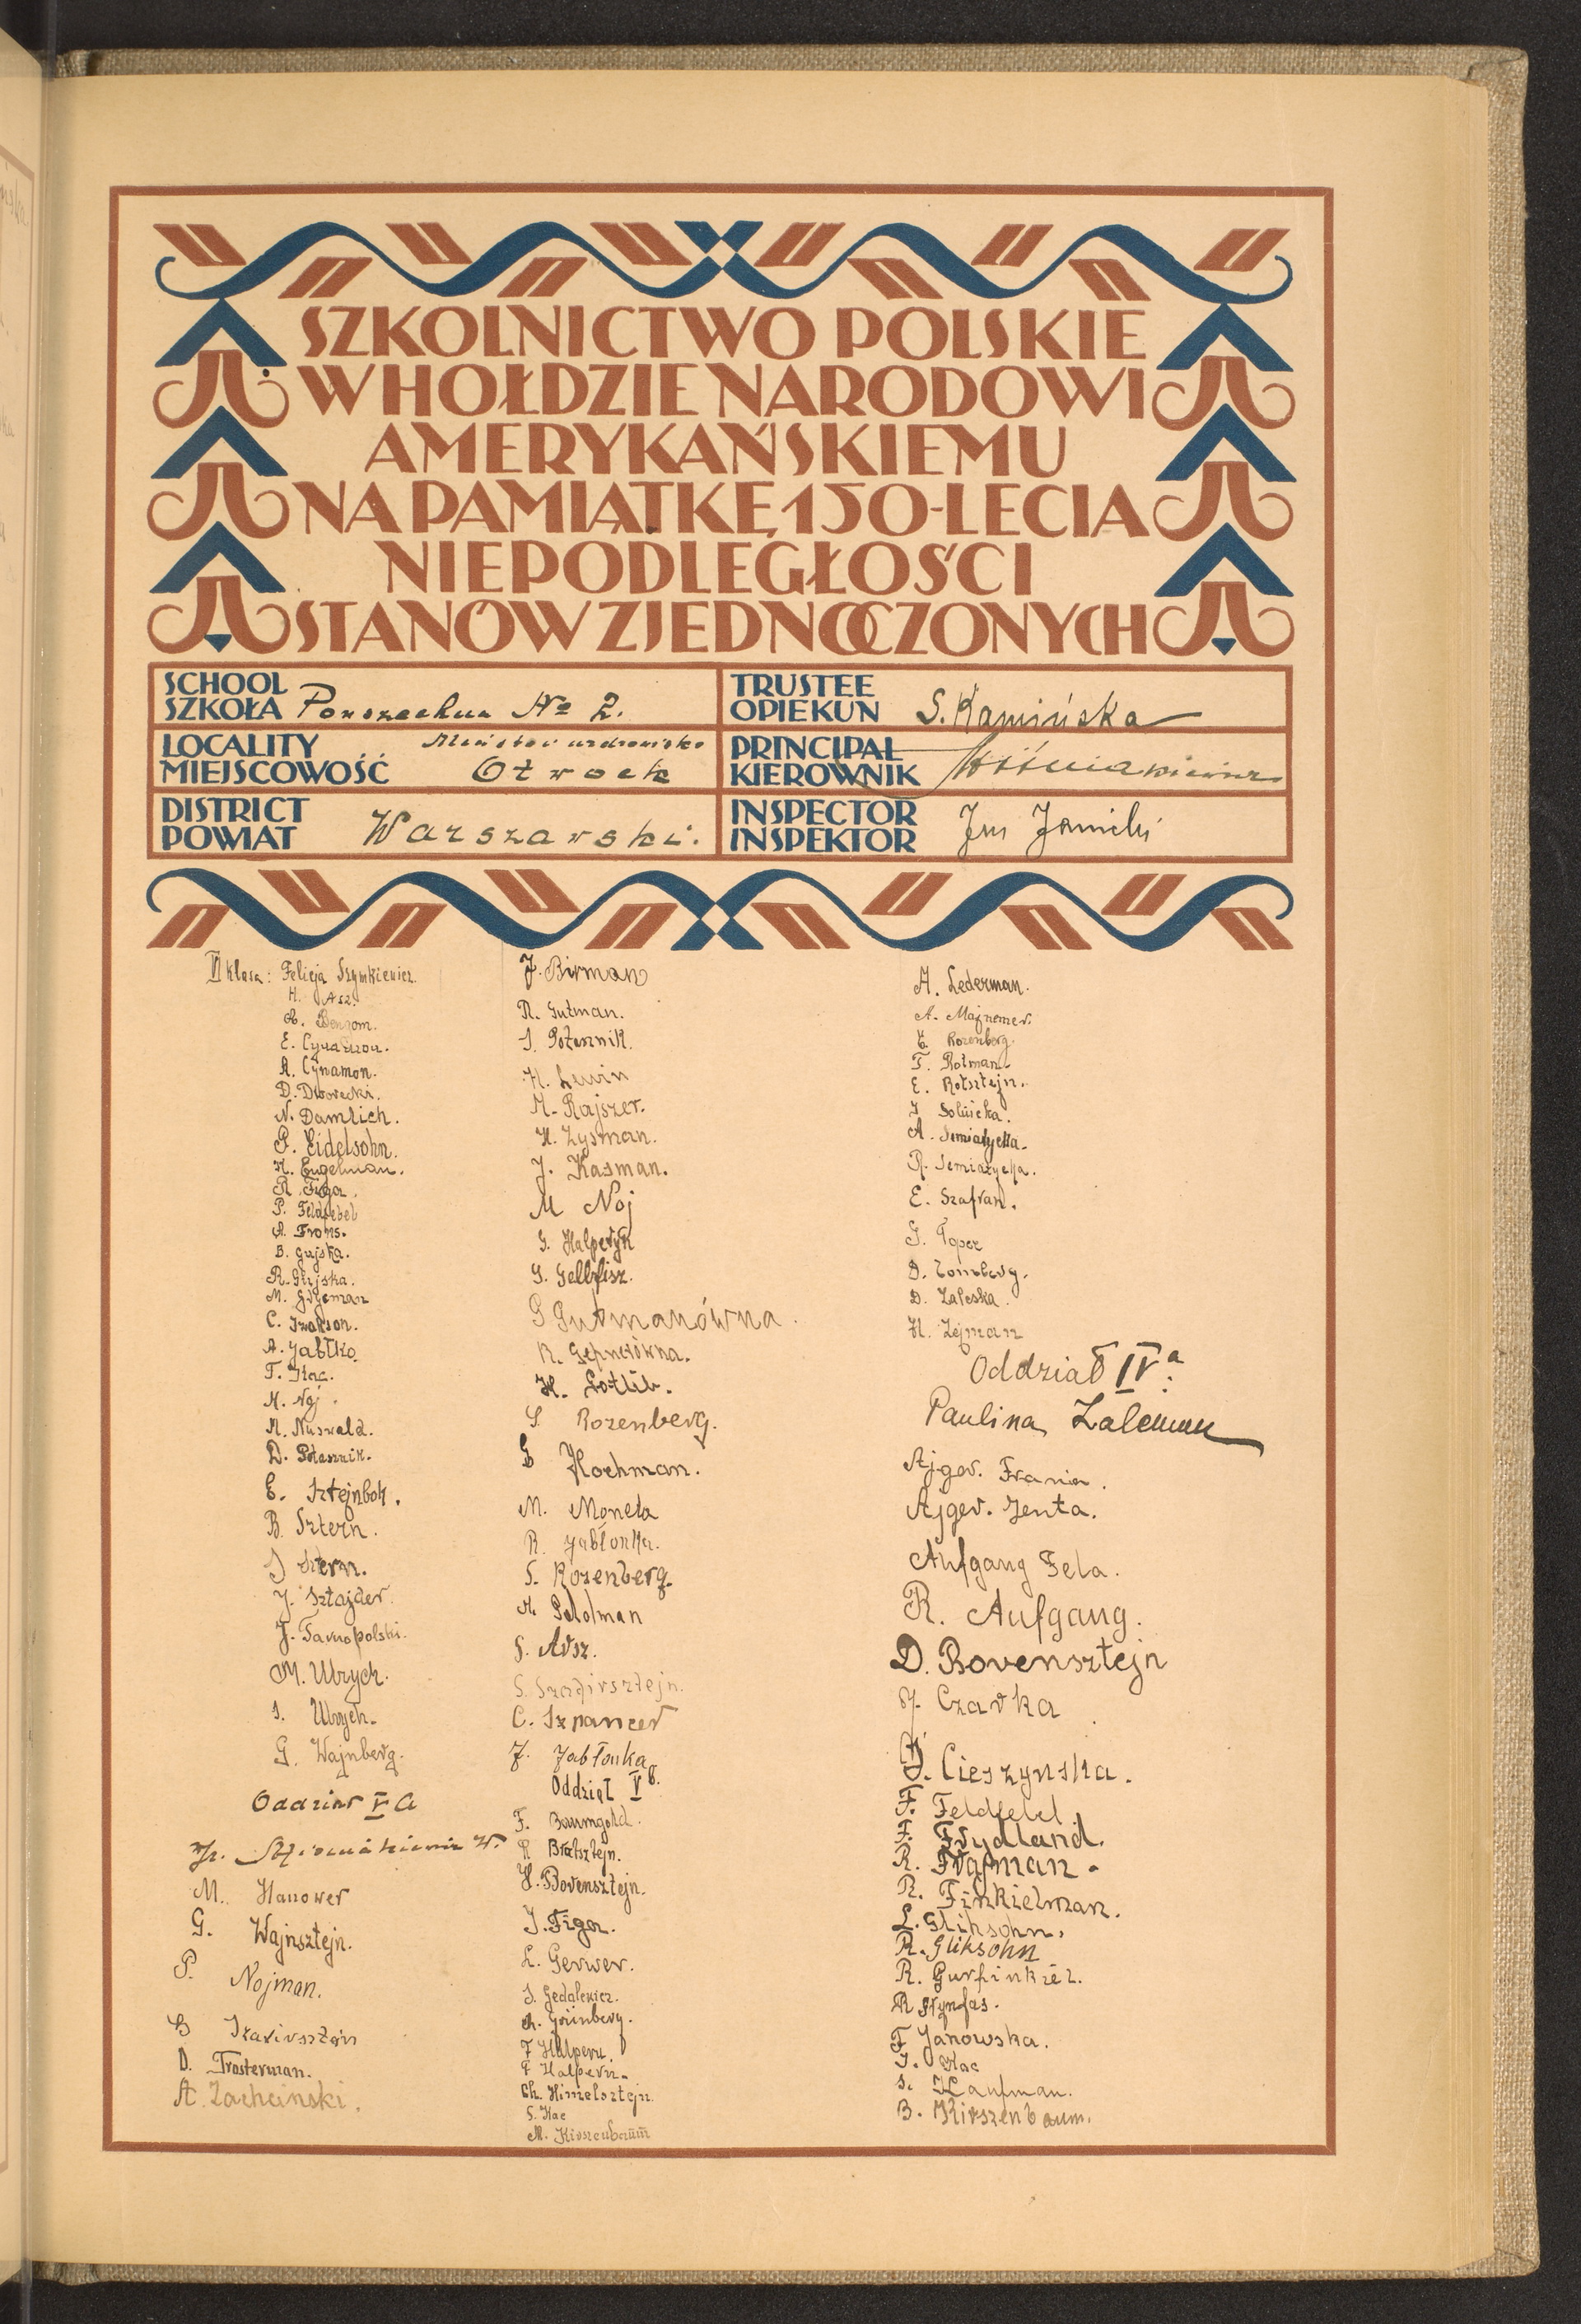 SZKOLNICTWO POLSKIE
W HOŁDZIE NARODOWI
AMERYKAŃSKIEMU
NA PAMIĄTKĘ 150-LECIA
NIEPODLEGŁOŚCI
STANÓW ZJEDNOCZONYCH
SCHOOL
SZKOŁA Powszechna № 2.
LOCALITY
MIEJSCOWOŚĆ Otwock
DISTRICT
POWIAT Warszawski.
TRUSTEE
OPIEKUN S. Kamińska
PRINCIPAL
KIEROWNIK
INSPECTOR
INSPEKTOR
VI klasa: Felicja Szymkiewicz.
H. Asz.
A.
E. Cynamon.
A. Cynamon.
D. Dworecki.
N. Damlich.
P. Eidelsohn.
H. Engelman.
R. Figa.
P. Feldfebel
A. Froms.
B. Gujska.
R. Gujska.
M.
C.
A. Jabłko.
T. Kac.
M. Noj.
M. Nuswald.
D. Potasznik.
E. Sztejnbok.
B. Sztern.
J Sztern.
J. Sztajder.
J. Tarnopolski.
M. Ulrych.
S. Ulrych.
G. Wajnberg.
Oddział V a
M. Hanower
G. Wajnsztejn.
P. Nojman.
B
D. Trosterman.
A. Zachciński.
J. Birman
R. Gutman.
J. Potasznik.
H. Lewin
M. Rajszer.
H. Zysman.
J. Kasman.
M Noj
G. Halperyn
G. Gelbfisz.
G Gutmanówna.
R. Gepnerówna.
H. Gotlib.
S Rozenberg.
G Hochman.
M. Moneta
R. Jabłonka.
S. Rozenberg.
A.
S. Arsz.
S.
C. Szpancer
J. Jabłonka
Oddział V b.
F. Baumgold.
R Bratsztejn.
H. Borensztejn.
J. Figa.
L. Gerwer.
S. Gedalewicz.
A. Grünberg.
F Halpern.
F Halpern.
Ch. Himelsztejn
S. Kac
M. Kirszenbaum
A. Lederman.
A. Majnemer.
E. Rozenberg.
F. Rotman.
E. Rotsztejn.
J Solnicka.
A. Siemiatycka.
R. Siemiatycka.
E. Szafran.
G. Toper
D.
D. Zaleska.
H. Zejman
Oddział IV a.
Paulina
Ajger. Frania.
Ajger. Jenta.
Aufgang Fela.
R. Aufgang.
D. Borensztejn
J. Czarka
J. Cieszyńska.
F. Feldfebel
F. Frydland.
R. Frajman.
R. Finkielman.
L. Gliksohn.
R. Gliksohn
R. Gurfinkiel.
R Hynfas.
F Janowska.
J. Kac
S. Kaufman.
B. Kirszenbaum.